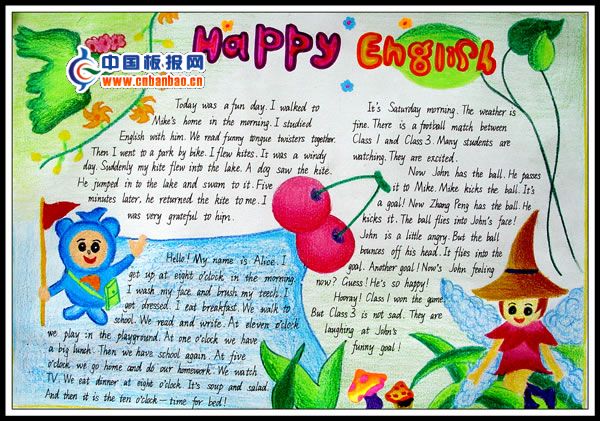 Happy English
中国板报网
www.cnbanbao.cn
Today was a fun day. I walked to
Mike's home in the morning. I studied
English with him. We read funny tongue twisters together.
Then I went to a park by bike. I flew kites. It was a windy
day. Suddenly my kite flew into the lake. A dog saw the kite.
He jumped in to the lake and swam to it. Five
minutes later, he returned the kite to me. I
was very grateful to him.
Hello! My name is Alice. I
get up at eight o'clock in the morning.
I wash my face and brush my teeth. I
get dressed. I eat breakfast. We walk to
school. We read and write. At eleven o'clock
we play in the playground. At one o'clock we have
a big lunch. Then we have school again. At five
o'clock we go home and do our homework. We watch
TV. We eat dinner at eight o'clock. It's soup and salad.
And then it is the ten o'clock—time for bed!
It's Saturday morning. The weather is
fine. There is a football match between
Class 1 and Class 3. Many students are
watching. They are excited.
Now John has the ball. He passes
it to Mike. Mike kicks the ball. It's
a goal! Now Zhang Peng has the ball. He
kicks it. The ball flies into John's face!
John is a little angry. But the ball
bounces off his head. It flies into the
goal. Another goal! Now's John feeling
now? Guess! He's so happy!
Hooray! Class 1 won the game.
But Class 3 is not sad. They are
laughing at John's
funny goal!